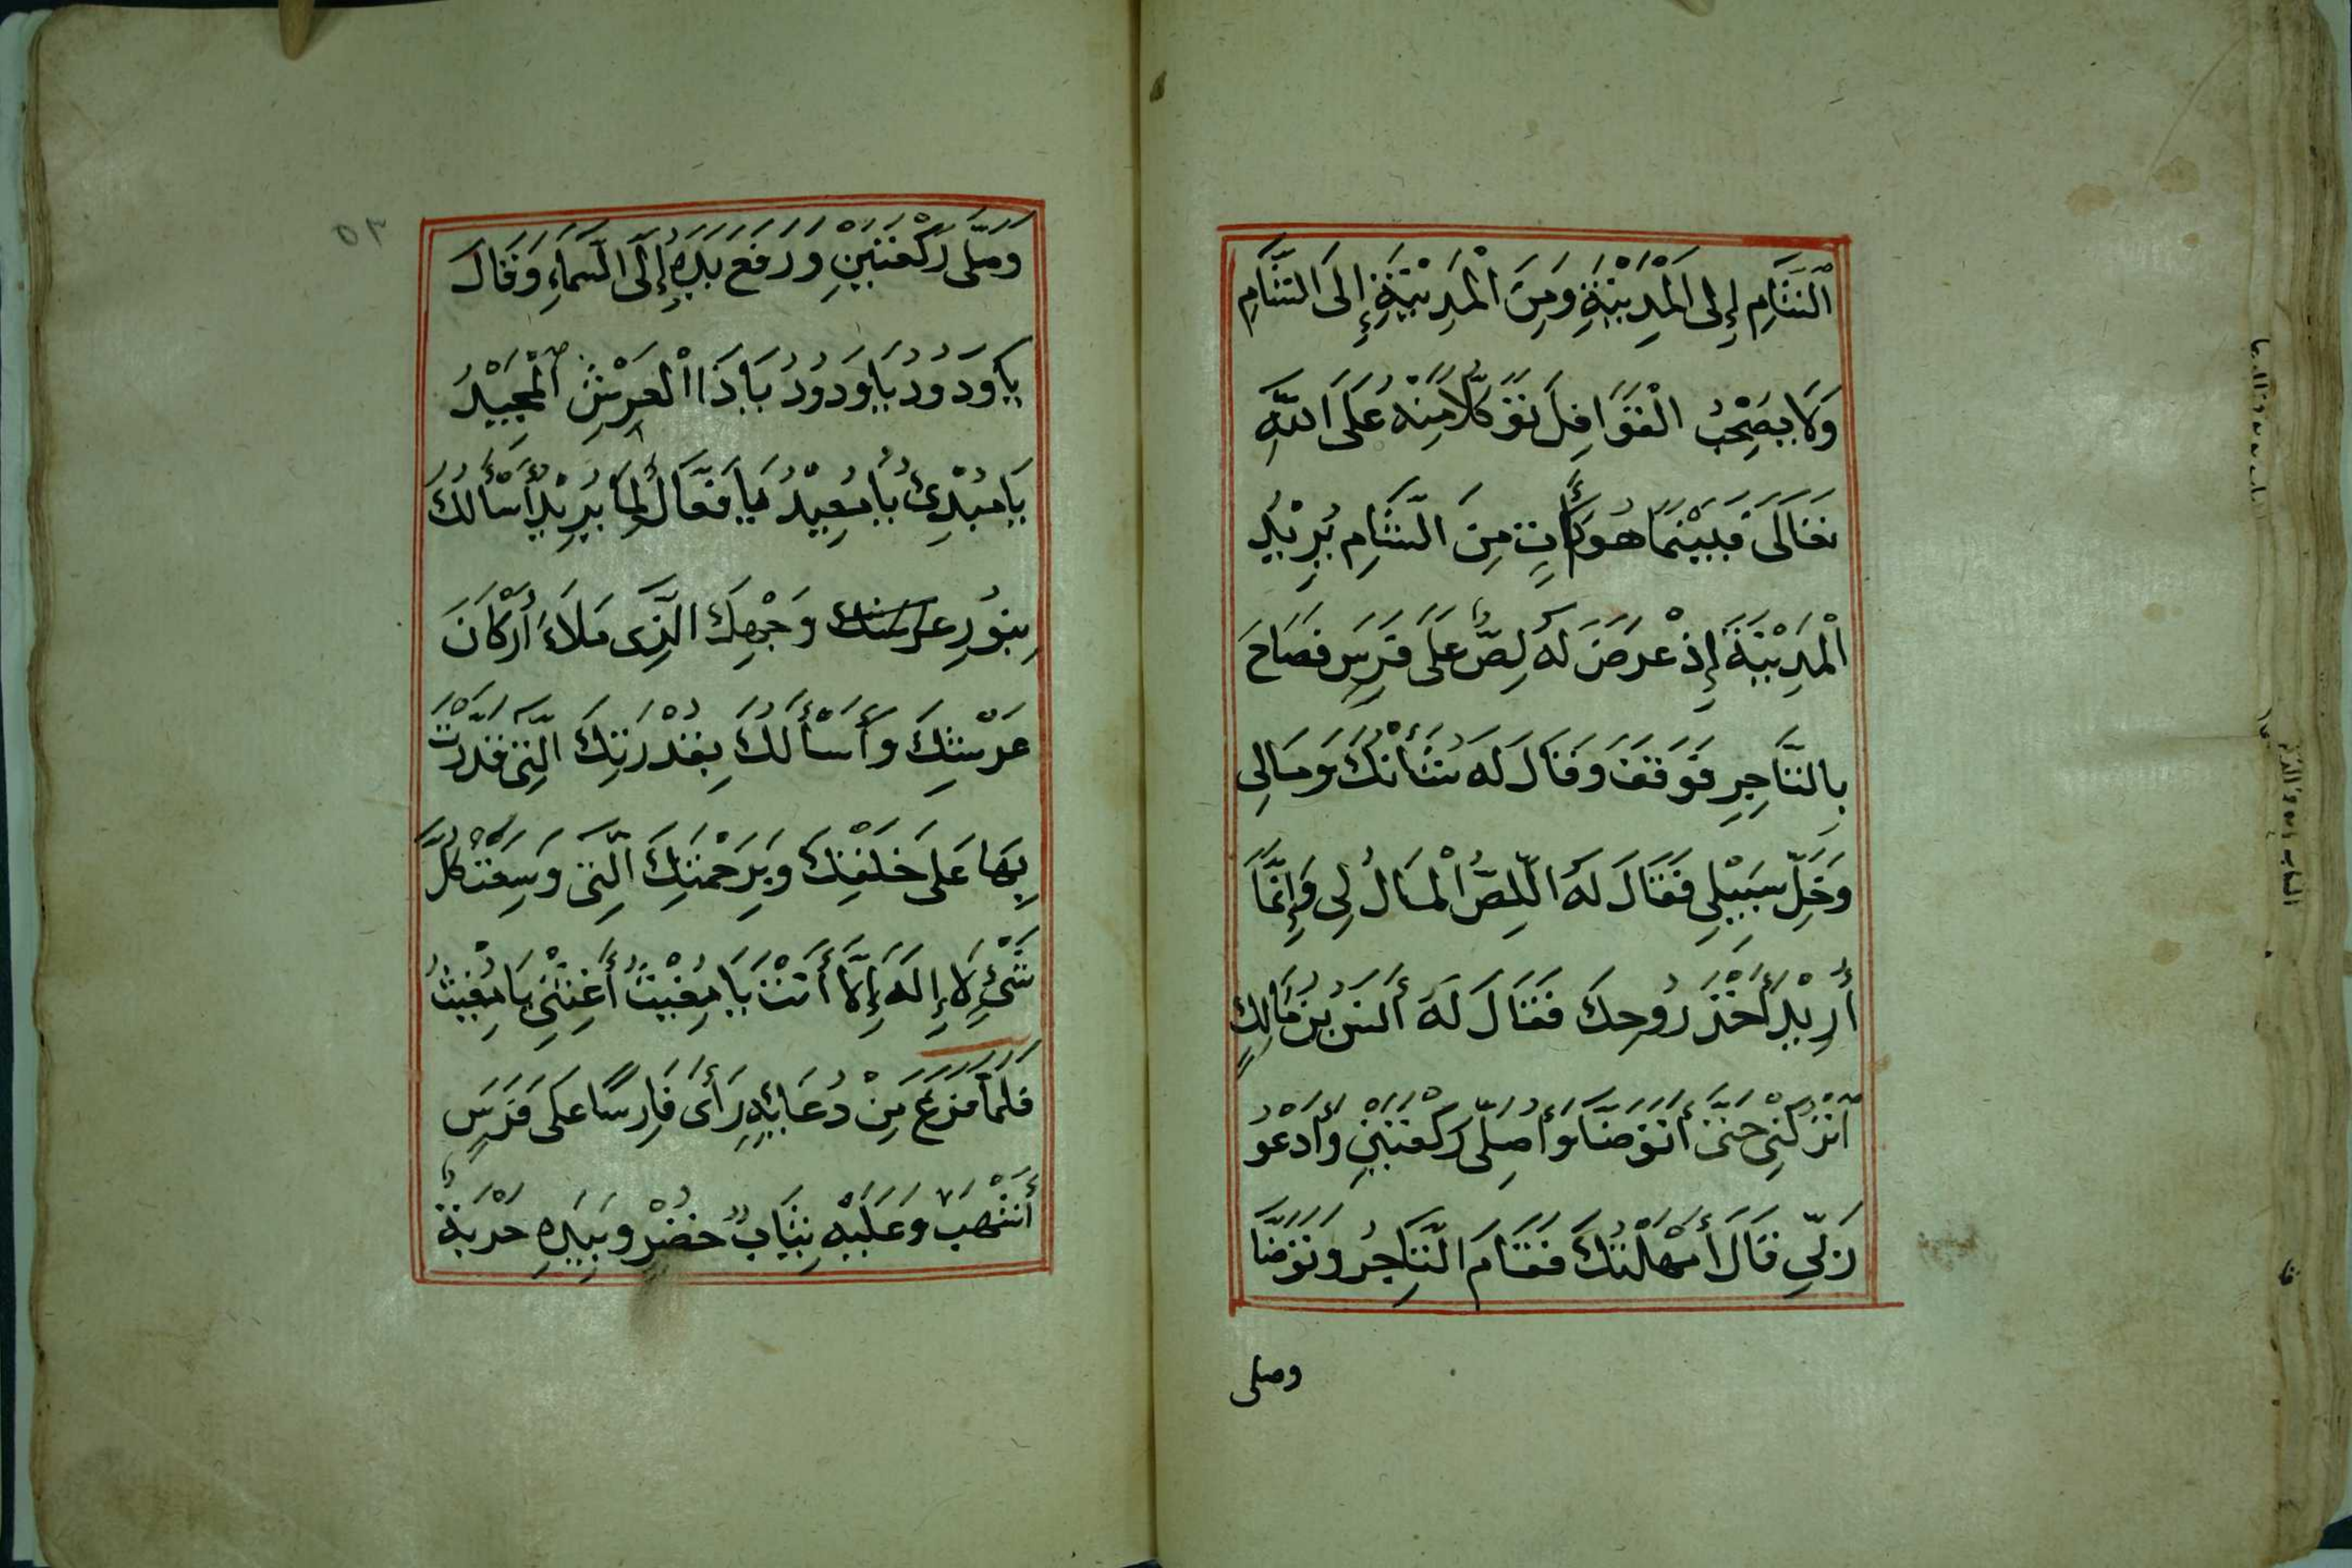 اَلشَّامِ إِلَى الْمَدِيْنَةِ وَمِنَ الْمَدِيْنَةِ إِلَى الشَّامِ
وَلَا يَصْحَبُ الْقَوَافِلَ تَوَكُّلًا مِنْهُ عَلَى اللّٰهِ
تَعَالَى فَبَيْنَمَا هُوَ كَأٰتٍ مِنَ الشَّامِ يُرِيْدُ
الْمَدِيْنَةَ إِذْ عَرَضَ لَهُ لِصٌّ عَلَى فَرَسٍ فَصَاحَ
بِالتَّاجِرِ فَوَقَفَ وَقَالَ لَهُ شَأْنُكَ وَمَالِى
وَخَلِّ سَبِيْلِى فَقَالَ لَهُ اللِّصُّ الْمَالُ لِى وَإِنَّمَا
أُرِيْدُ أَخْذَ رُوْحِكَ فَقَالَ لَهُ أَنَسُ بْنُ مَالِكٍ
اُتْرُكْنِى حَتَّى أَتَوَضَّأَ وَأُصَلِّى رَكْعَتَيْنِ وَأَدْعُو
رَبِّى قَالَ أَمْهَلْتُكَ فَقَامَ التَّاجِرُ وَتَوَضَّأَ
وصلى
٥٣
وَصَلَّى رَكْعَتَيْنِ وَرَفَعَ يَدَهُ إِلَى السَّمَاءِ وَقَالَ
يَا وَدُوْدُ يَا وَدُوْدُ يَا ذَا الْعَرْشِ الْمَجِيْدُ
يَا مُبْدِئُ يَا مُعِيْدُ يَا فَعَّالُ لِمَا يُرِيْدُ أَسْأَلُكَ
بِنُوْرِ عرشك وَجْهِكَ الَّذِى مَلَاءَ أَرْكَانَ
عَرْشِكَ وَأَسْأَلُكَ بِقُدْرَتِكَ الَّتِى قَدَّرْتَ
بِهَا عَلَى خَلْقِكَ وَبِرَحْمَتِكَ الَّتِى وَسِعَتْ كُلَّ
شَىْءٍ لَا إِلَهَ إِلَّا أَنْتَ يَا مُغِيْثُ أَغِثْنِى يَا مُغِيْثُ
فَلَمَّا فَرَغَ مِنْ دُعَائِهِ رَأَى فَارِسًا عَلَى فَرَسٍ
أَشْهَبَ وَعَلَيْهِ ثِيَابٌ خُضْرٌ وَبِيَدِهِ حَرْبَةٌ